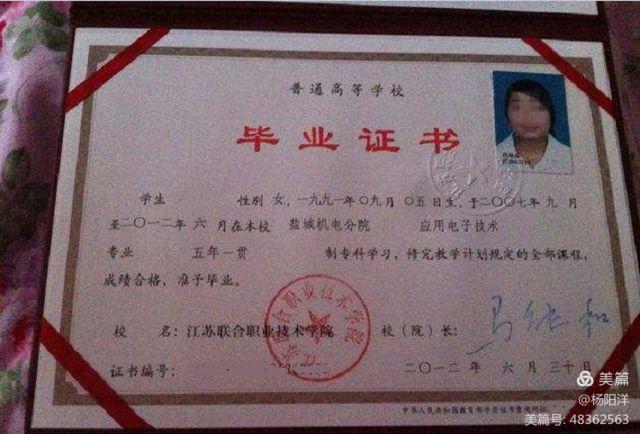 普通高等学校
毕业证书
学生 性别 女，一九九一年〇九月〇五日生，于二〇〇七年九月
至二〇一二年六月在本校 盐城机电分院 应用电子技术
专业 五年一贯 制专科学习，修完教学计划规定的全部课程，
成绩合格，准予毕业。
校 名：江苏联合职业技术学院 校（院）长：
证书编号： 二〇一二年 六月 三十日
美篇
@杨阳洋
美篇号: 48362563